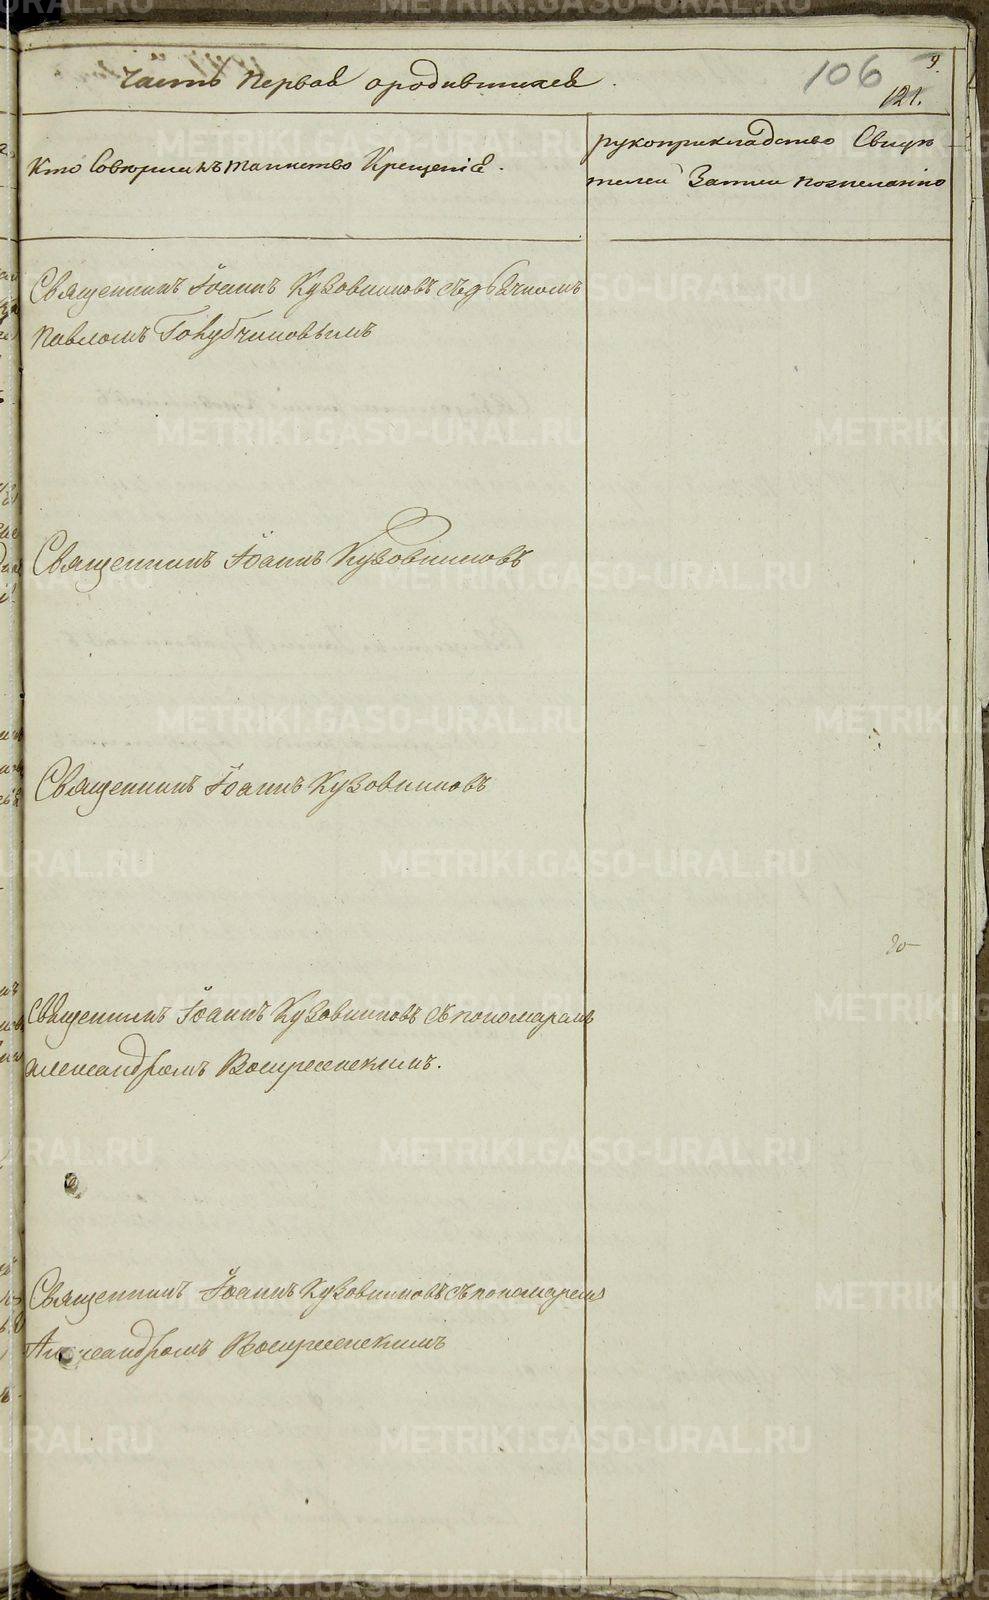 Часть Первая о родившихся.
106
9.
121.
Кто Совершилъ таинство Крещенія.
рукоприкладство Свидѣ
телей Записи по желанію
Священникъ Іоаннъ Кузовниковъ съ дьячкомъ
Павломъ Голубчиковымъ
Священникъ Іоаннъ Кузовниковъ
Священникъ Іоаннъ Кузовниковъ
Священникъ Іоаннъ Кузовниковъ съ пономаремъ
Александромъ Воскресенскимъ.
Священникъ Іоаннъ Кузовниковъ съ пономаремъ
Александромъ Воскресенскимъ
METRIKI.GASO-URAL.RU